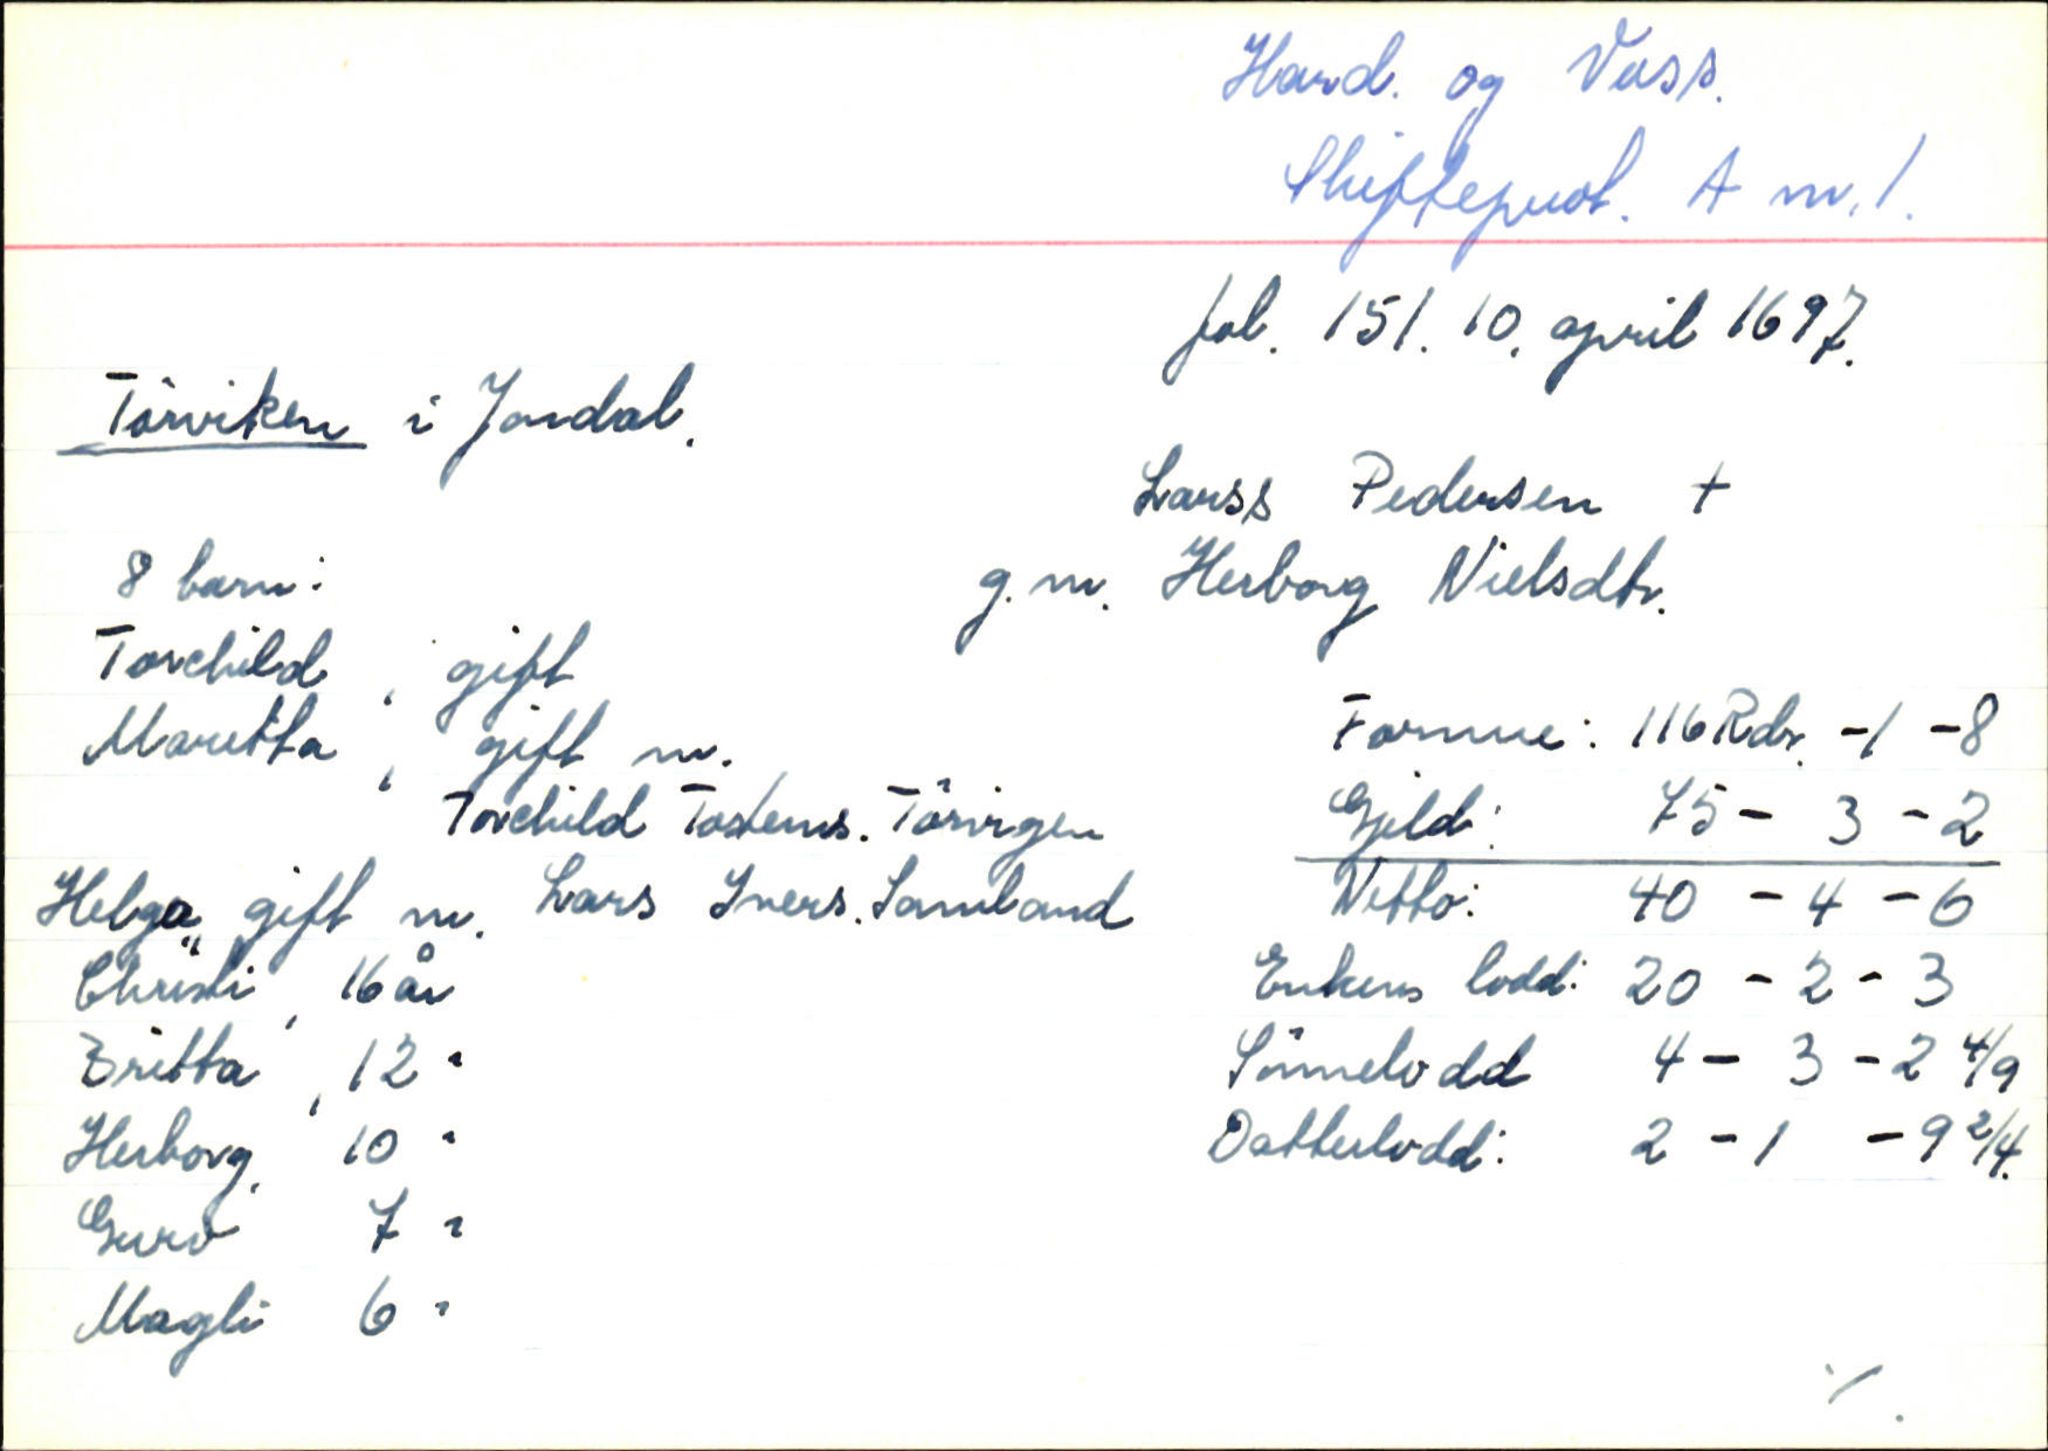 Hard. og Voss.
Skifteprot. A nr. 1.
fol. 151. 10. april 1697.
Törviken i Jondal.
Larss Pedersen +
g. m. Herborg Nielsdtr.
8 barn:
Torchild, gift
Maritta, gift m.
Torchild Tostens. Törvigen
Helga, gift m. Lars Ivers. Samland
Christi, 16 år
Britta, 12 "
Herborg, 10 "
Guro 7 "
Magli 6 "
Formue: 116 Rdr. - 1 - 8
Gjeld: 75 - 3 - 2
Netto: 40 - 4 - 6
Enkens lodd: 20 - 2 - 3
Sönnelodd 4 - 3 - 2 4/9
Datterlodd: 2 - 1 - 9 2/4.